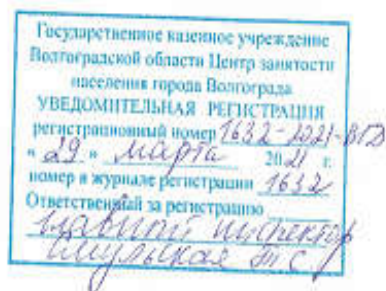 Государственное казенное учреждение
Волгоградской области Центр занятости
населения города Волгограда
УВЕДОМИТЕЛЬНАЯ РЕГИСТРАЦИЯ
регистрационный номер 1632-2021-ВГД
" 29 " марта 2021 г.
номер в журнале регистрации 1632
Ответственный за регистрацию
главный инспектор
Т С